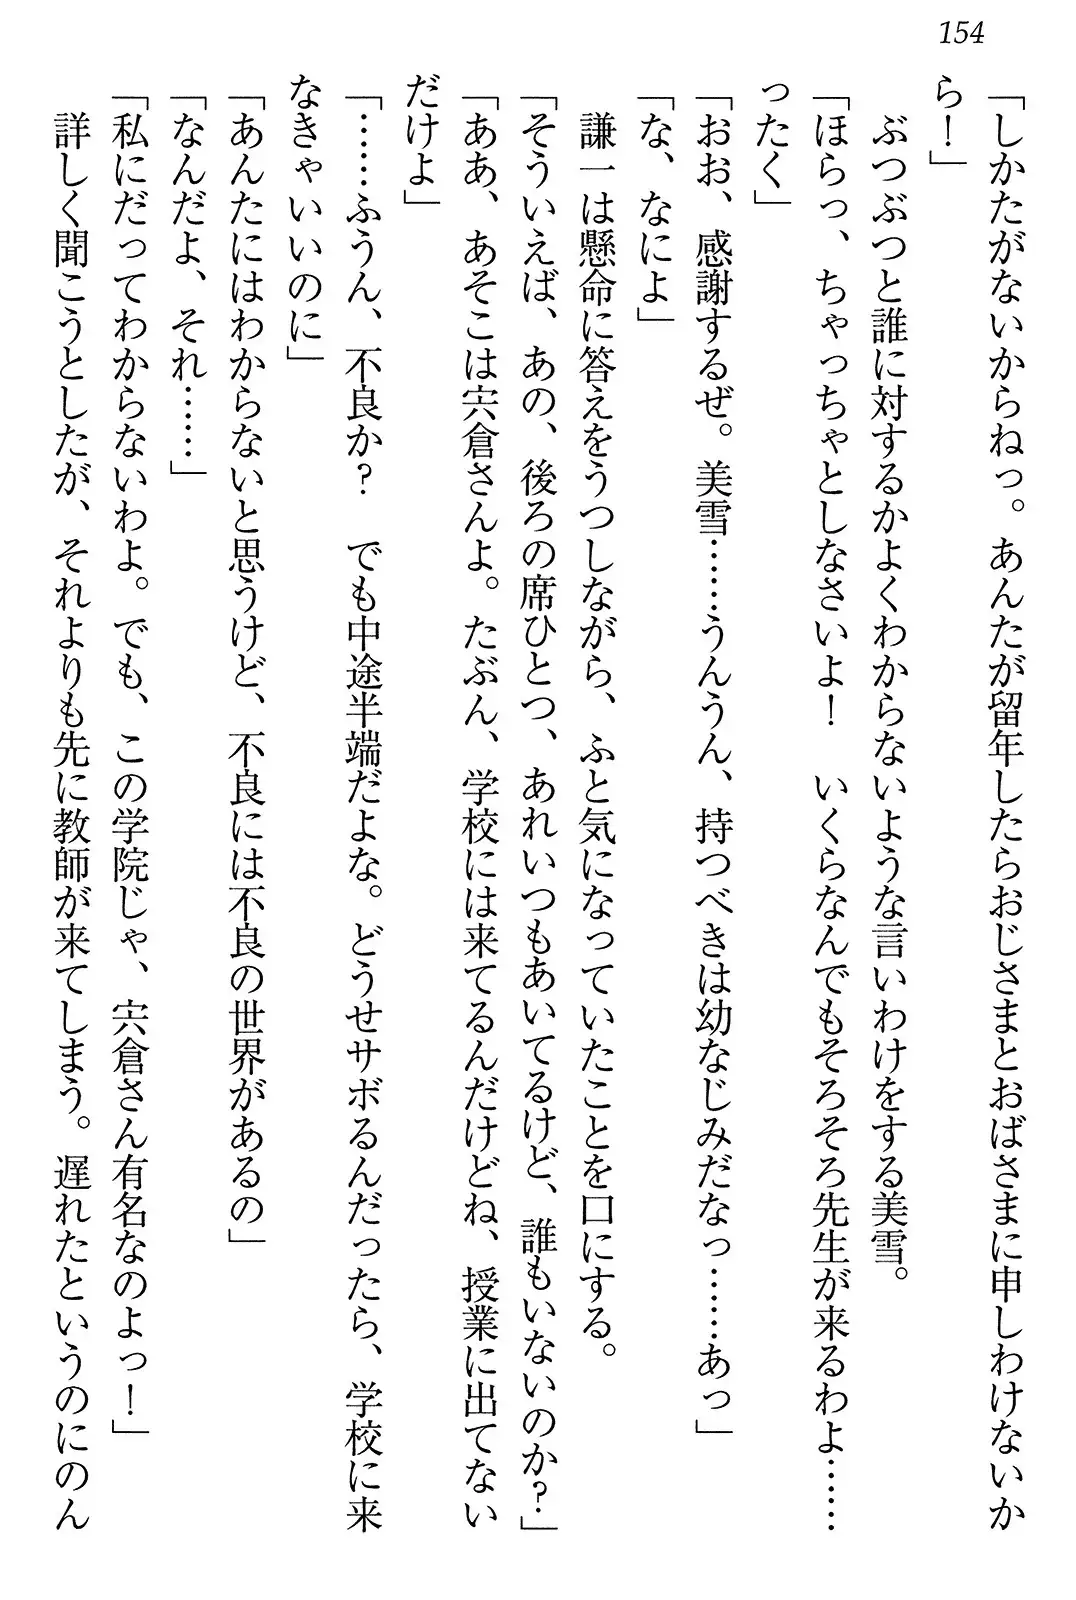 154
「しかたがないからねっ。あんたが留年したらおじさまとおばさまに申しわけないか
ら！」
　ぶつぶつと誰に対するかよくわからないような言いわけをする美雪。
「ほらっ、ちゃっちゃとしなさいよ！　いくらなんでもそろそろ先生が来るわよ……
ったく」
「おお、感謝するぜ。美雪……うんうん、持つべきは幼なじみだなっ……あっ」
「な、なによ」
　謙一は懸命に答えをうつしながら、ふと気になっていたことを口にする。
「そういえば、あの、後ろの席ひとつ、あれいつもあいてるけど、誰もいないのか？」
「ああ、あそこは宍倉さんよ。たぶん、学校には来てるんだけどね、授業に出てない
だけよ」
「……ふうん、不良か？　でも中途半端だよな。どうせサボるんだったら、学校に来
なきゃいいのに」
「あんたにはわからないと思うけど、不良には不良の世界があるの」
「なんだよ、それ……」
「私にだってわからないわよ。でも、この学院じゃ、宍倉さん有名なのよっ！」
　詳しく聞こうとしたが、それよりも先に教師が来てしまう。遅れたというのにのん